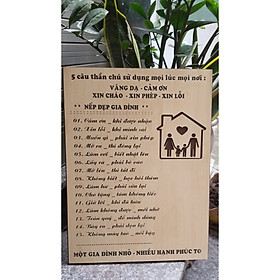 5 câu thần chú sử dụng mọi lúc mọi nơi :
VÂNG DẠ - CẢM ƠN
XIN CHÀO - XIN PHÉP - XIN LỖI
** NẾP ĐẸP GIA ĐÌNH **
01. Cảm ơn _ khi được nhận
02. Xin lỗi _ khi mình sai
03. Muốn gì _ phải xin phép
04. Mở ra _ thì đóng lại
05. Làm rơi _ biết nhặt lên
06. Lấy ra _ phải bỏ vào
07. Mở lên _ thì tắt đi
08. Không biết _ học hỏi thêm
09. Làm hư _ phải xin lỗi
10. Chờ tặng _ tâm không tiếc
11. Giữ lời _ khi đã hứa
12. Làm không được _ mới nhờ
13. Trân quý _ đồ mình dùng
14. Bày ra _ phải dọn lại
15. Không may té _ mới
MỘT GIA ĐÌNH NHỎ - NHIỀU HẠNH PHÚC TO